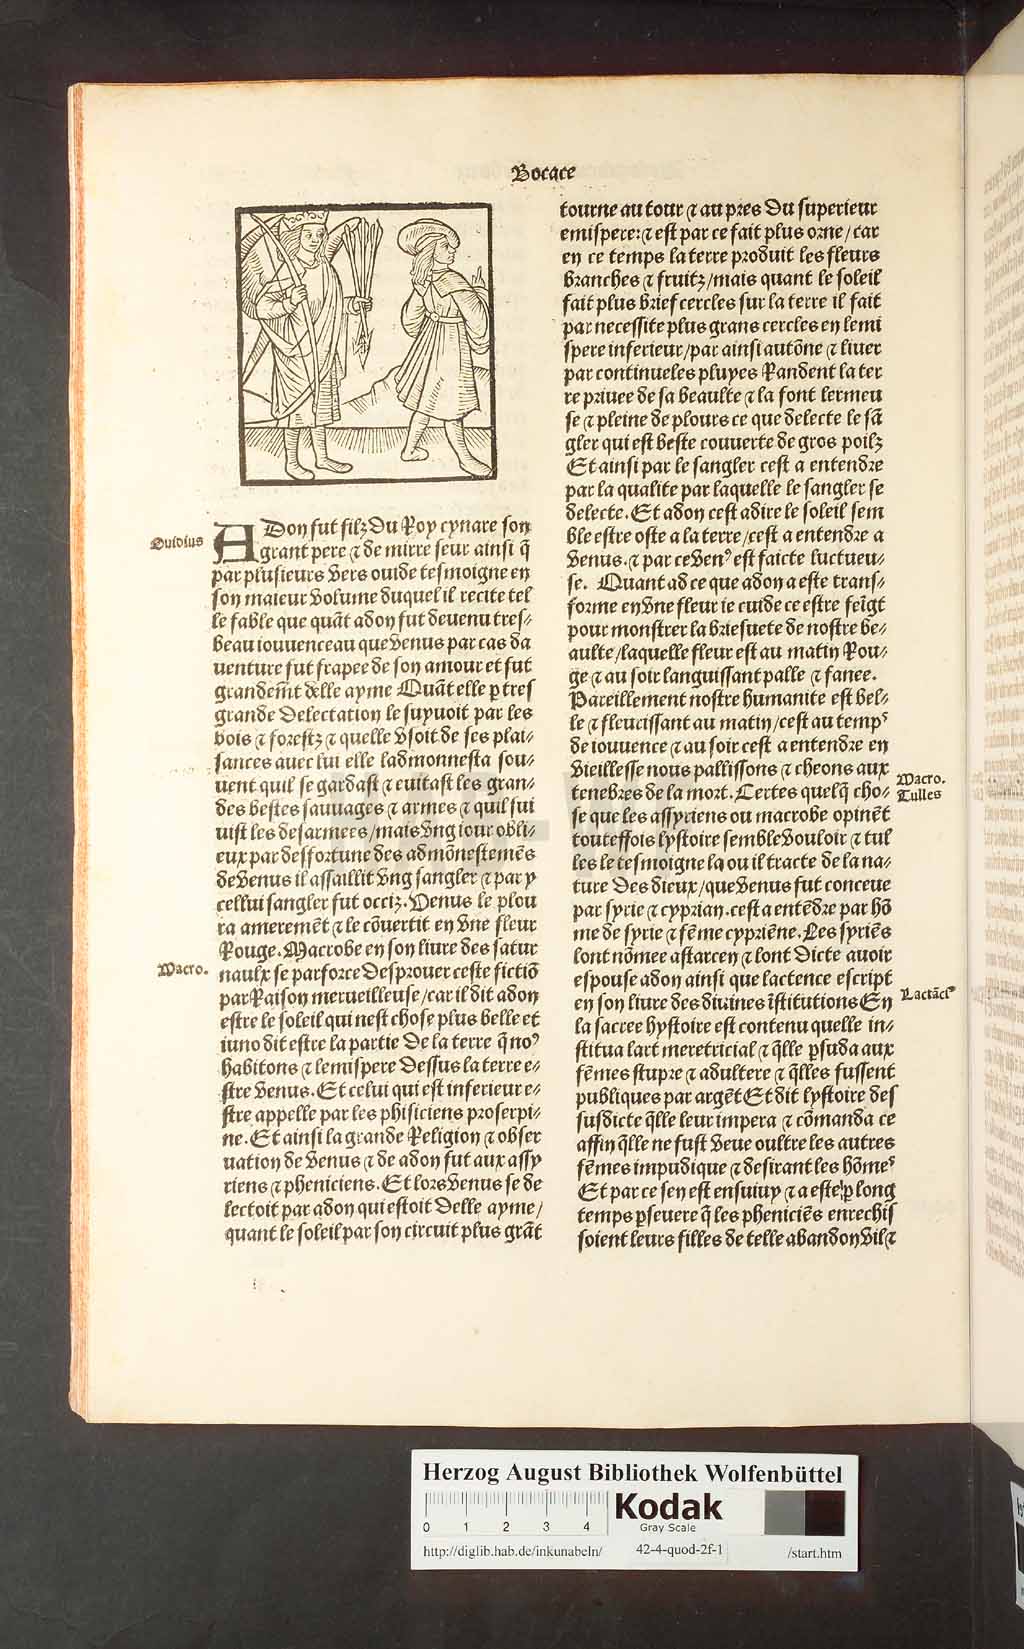 Bocace
Ouidius
ADon fut filz Du Roy cynare son
grant pere ⁊ de mirre seur ainsi q̃
par plusieurs vers ouide tesmoigne en
son maieur volume duquel il recite tel
le fable que quãt adon fut deuenu tres/
beau iouuenceau que venus par cas da
uenture fut frapee de son amour et fut
grandemt̃ delle ayme Quãt elle p tres
grande Delectation le suyuoit par les
bois ⁊ forestz ⁊ quelle vsoit de ses plai/
sances auec lui elle ladmonnesta sou/
uent quil se gardast ⁊ euitast les gran/
des bestes sauuages ⁊ armes ⁊ quil sui
uist les desarmees/mais vng iour obli/
eux par desfortune des admõnestemẽs
de venus il assaillit vng sangler ⁊ par y
cellui sangler fut occiz. Venus le plou
raameremẽt ⁊ le cõuertit en vne fleur
Rouge. Macrobe en son liure des satur
Macro.
naulx se parforce Desprouer ceste fictiõ
par Raison merueilleuse/car il dit adon
estre le soleil qui nest chose plus belle et
iuno dit estre la partie De la terre q̃ noꝰ
habitons ⁊ lemispere Dessus la terre e/
stre venus. Et celui qui est inferieur e/
stre appelle par les phisiciens proserpi/
ne. Et ainsi la grande Religion ⁊ obser
uation de venus ⁊ de adon fut aux assy
riens ⁊ pheniciens. Et lors venus se de
lectoit par adon qui estoit Delle ayme/
quant le soleil par son circuit plus grãt
tourne au tour ⁊ au pres Du superieur
emispere: ⁊ est par ce fait plus orne/car
en ce temps la terre produit les fleurs
branches ⁊ fruitz/mais quant le soleil
fait plus brief cercles sur la terre il fait
par necessite plus grans cercles en lemi
spere inferieur/par ainsi autõne ⁊ liuer
par continueles pluyes Randent la ter
re priuee de sa beaulte ⁊ la font lermeu
se ⁊ pleine de plours ce que delecte le sã
gler qui est beste couuerte de gros poilz
Et ainsi par le sangler cest a entendre
par la qualite par laquelle le sangler se
delecte. Et adon cest adire le soleil sem
ble estre oste a la terre/cest a entendre a
venus. ⁊ par ce venꝰ est faicte luctueu/
se. Quant ad ce que adon a este trans/
forme en vne fleur ie cuide ce estre feĩgt
pour monstrer la briefuete de nostre be/
aulte/laquelle fleur est au matin Rou/
ge ⁊ au soir languissant palle ⁊ fanee.
Pareillement nostre humanite est bel/
le ⁊ fleurissant au matin/cest au tempˢ
de iouuence ⁊ au soir cest a entendre en
vieillesse nous pallissons ⁊ cheons aux
Macro.
tenebres de la mort. Certes quelq̃ cho/
Tulles
se que les assyriens ou macrobe opinẽt
touteffois lystoire semble vouloir ⁊ tul
les le tesmoigne la ou il tracte de la na/
ture Des dieux/que venus fut conceue
par syrie ⁊ cyprian. cest a entẽdre par hõ
me de syrie ⁊ fẽme cypriẽne. Les syriẽs
lont nõmee astarcen ⁊ lont Dicte auoir
espouse adon ainsi que lactence escript
Lactãciꝰ
en son liure des diuines ĩstitutions En
la sacree hystoire est contenu quelle in/
stitua lart meretricial ⁊ q̃lle ꝑsuda aux
fẽmes stupre ⁊ adultere ⁊ q̃lles fussent
publiques par argẽt Et dit lystoire des
susdicte q̃lle leur impera ⁊ cõmanda ce
affin q̃lle ne fust veue oultre les autres
fẽmes impudique ⁊ desirant les hõmeˢ
Et par ce sen est ensuiuy ⁊ a este ꝑ long
temps ꝑseuere q̃ les pheniciẽs enrechis
soient leurs filles de telle abandon vil ⁊
Herzog August Bibliothek Wolfenbüttel
0 1 2 3 4
Kodak
Gray Scale
http://diglib.hab.de/inkunabeln/ 42-4-quod-2f-1 /start.htm